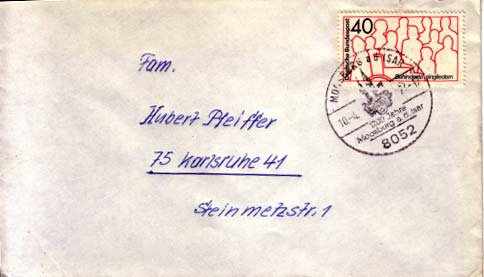 40
Deutsche Bundespost
Behinderte eingliedern
MOOSBURG a d ISAR
10.-4.
1200 Jahre
Moosburg a. d. Isar
8052
Fam.
Hubert Pfeiffer
75 Karlsruhe 41
Steinmetzstr. 1